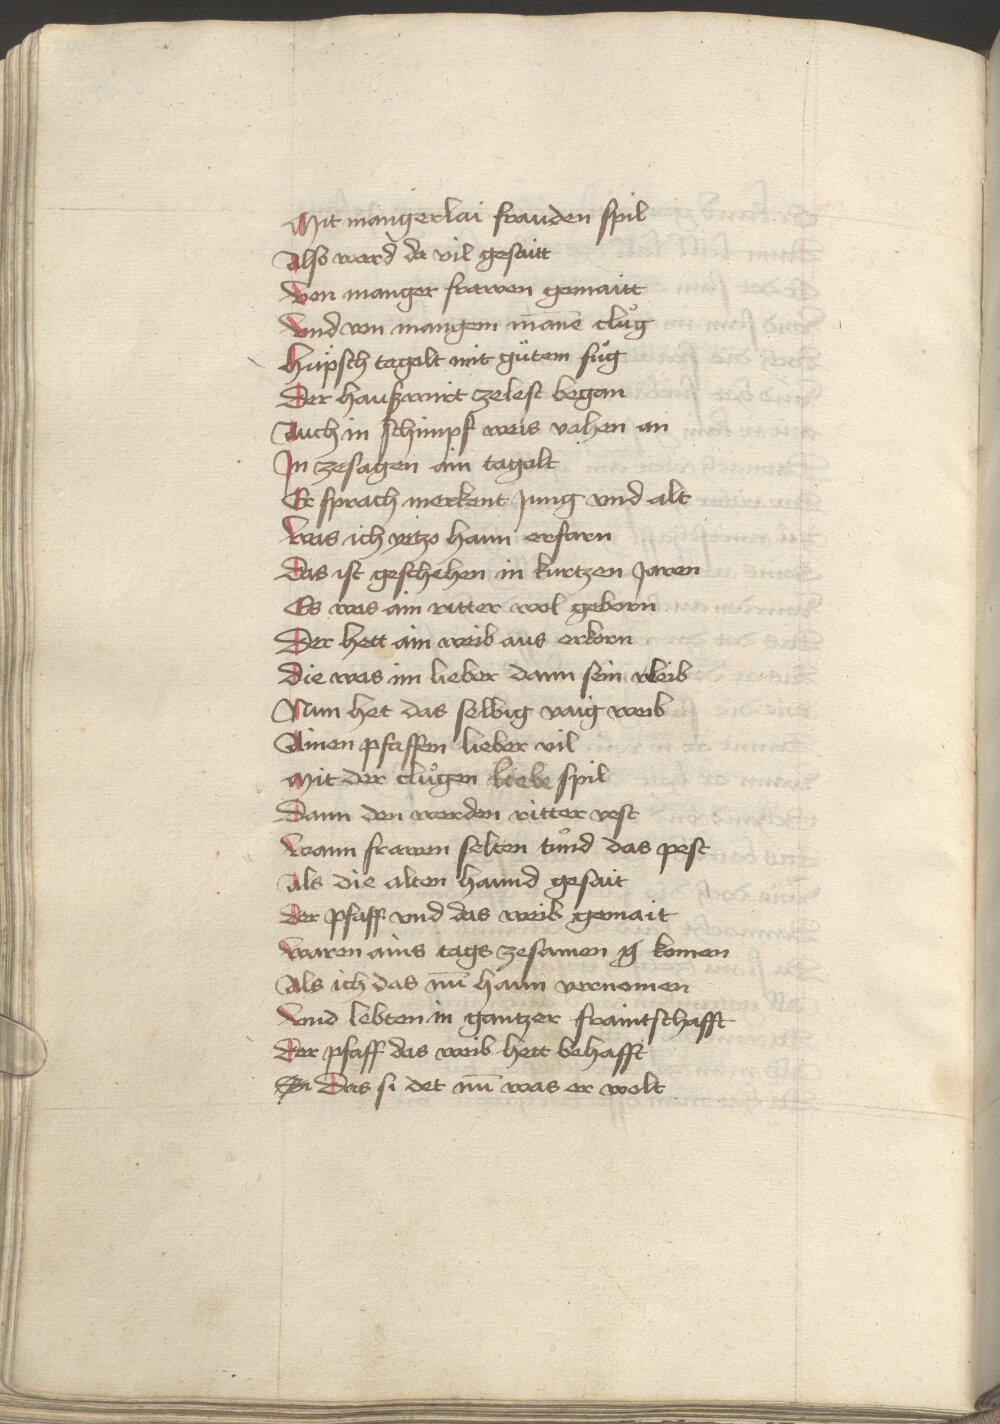 Mit mangerlai frauden spil
Also ward da vil gesaitt
Von manger frawen gemaitt
Vnd von mangem man̄e clůg
Hüpsch tagalt mit gůtem fůg
Der hauszwirt zelest began
Auch in schimpf weis vahen an
In zesagen ain tagalt
Er sprach merkent jung vnd alt
Was ich yetzo hann erfarn
Das ist geschehen in kurtzen Jaren
Es was ain ritter wol geborn
Der hett ain weib aus erkorn
Die was im lieber dann sein leib
Nun het das selbig vaig weib
Ainen pfaffen lieber vil
Mit der clůgen liebe spil
Dann den werden ritter vest
Wann frawen selten tůnd das pest
Als die alten hannd gesait
Der pfaff vnd das weib gemait
Waren ains tags zesamen komen
Als ich das nū hann vernomen
Vnd lebten in gantzer fraintschafft
Der pfaff das weib hett behafft
Das si det nū was er wolt